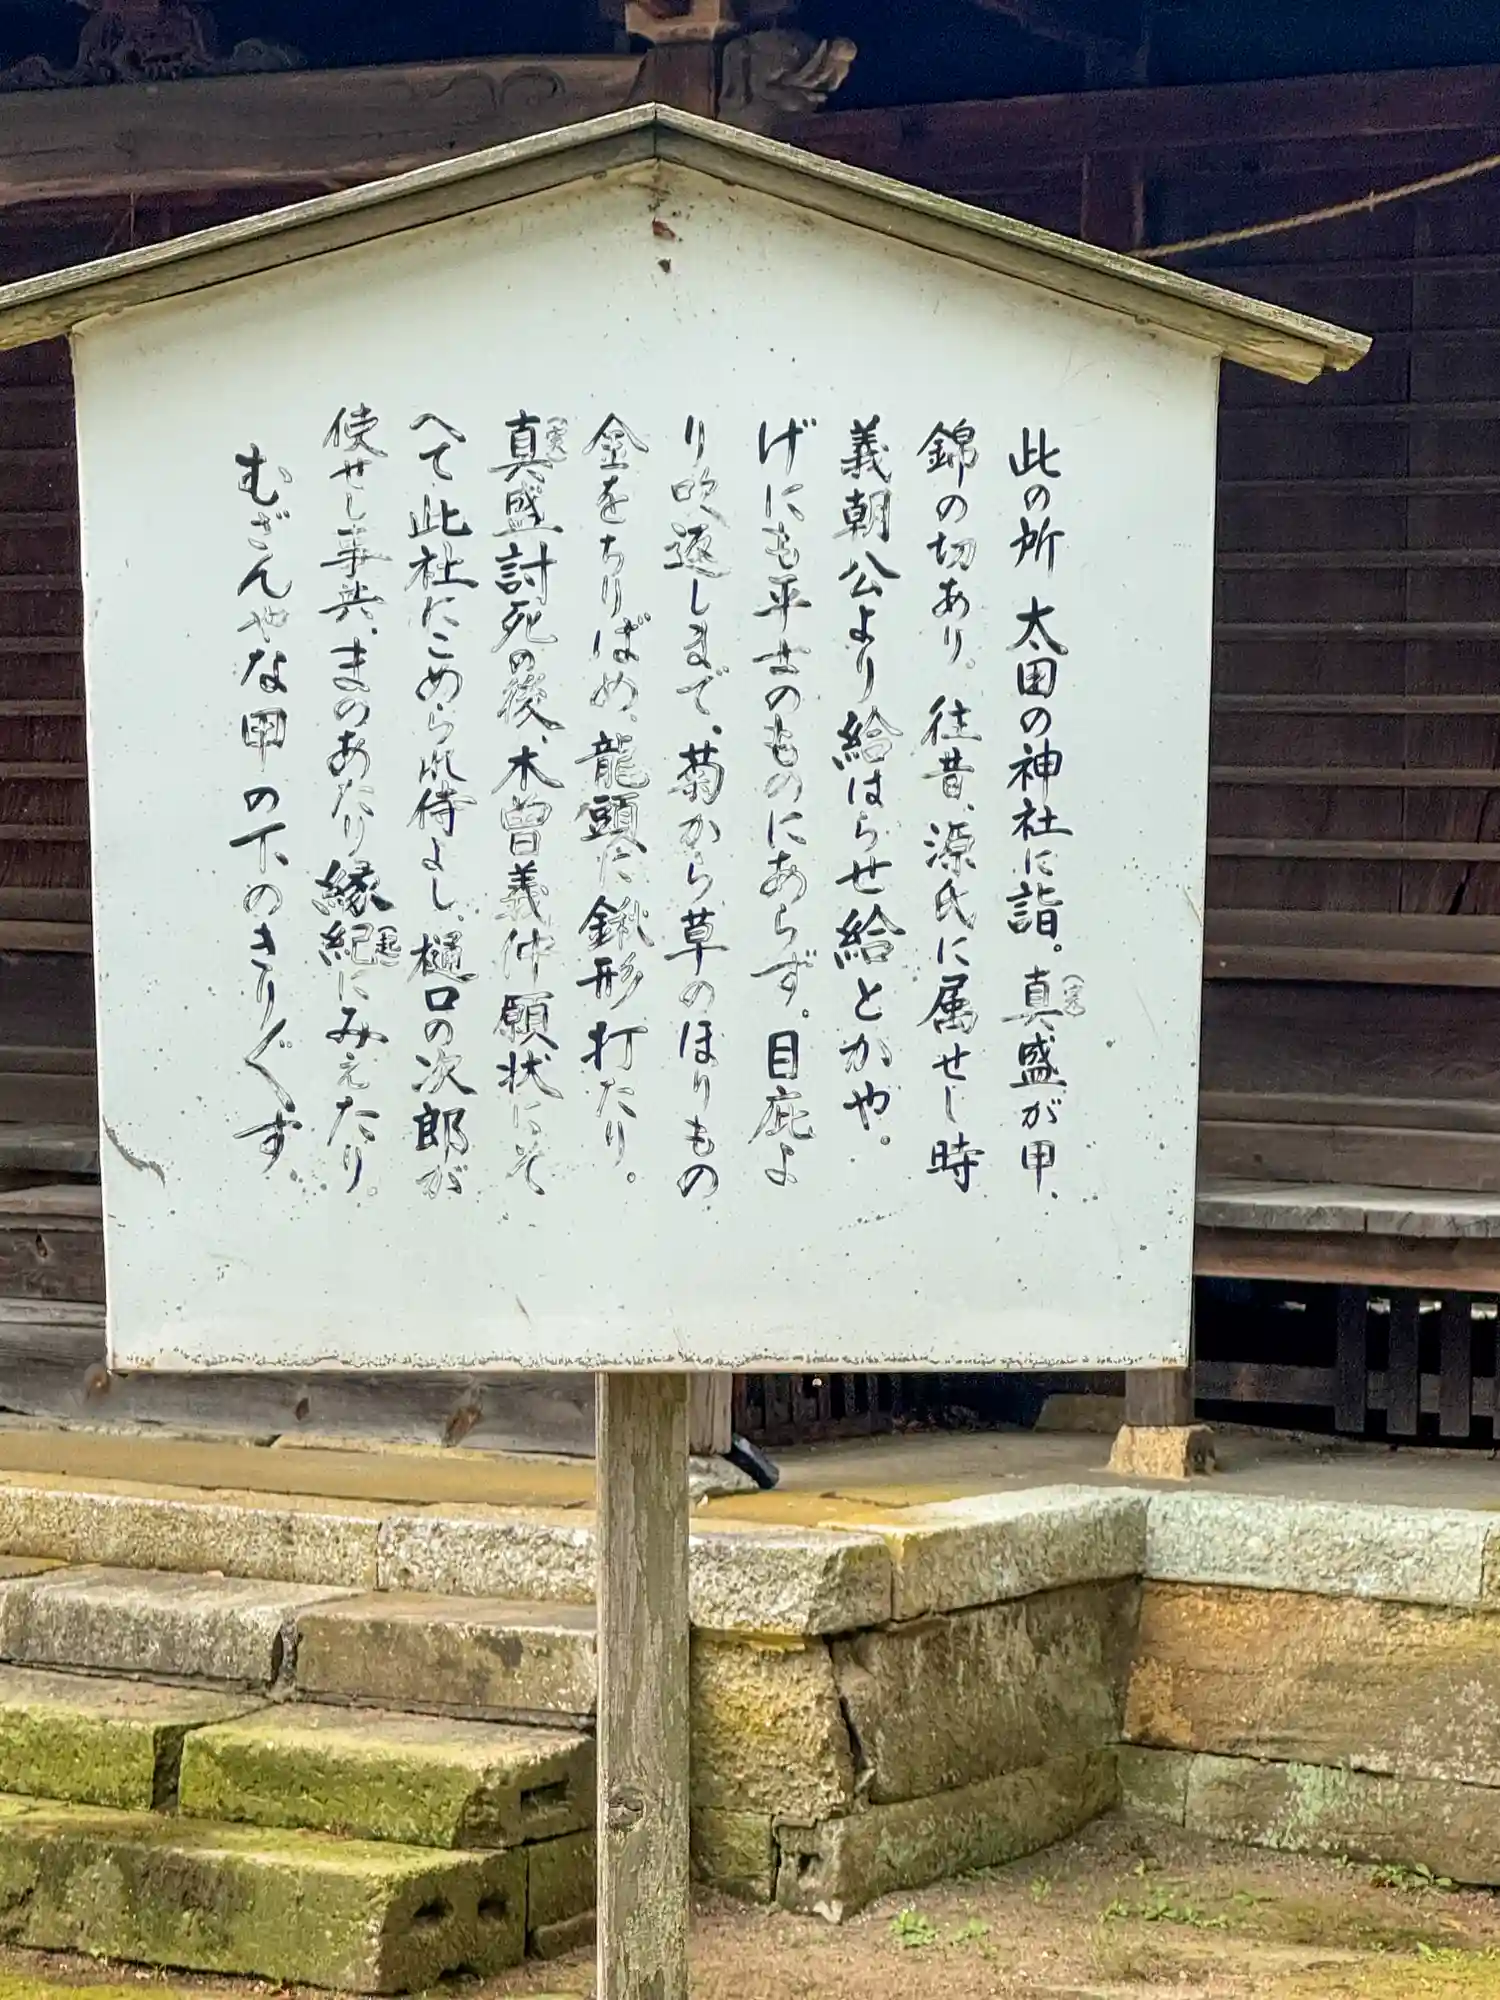 此の所 太田の神社に詣。真(実)盛が甲、
錦の切あり。往昔、源氏に属せし時
義朝公より給はらせ給とかや。
げにも平士のものにあらず。目庇よ
り吹返しまで、菊から草のほりもの
金をちりばめ、龍頭に鍬形打たり。
真(実)盛討死の後、木曽義仲願状にそ
へて此社にこめられ侍よし、樋口の次郎が
使せし事共、まのあたり縁紀(起)にみえたり。
むざんやな甲の下のきりぐ〵す。